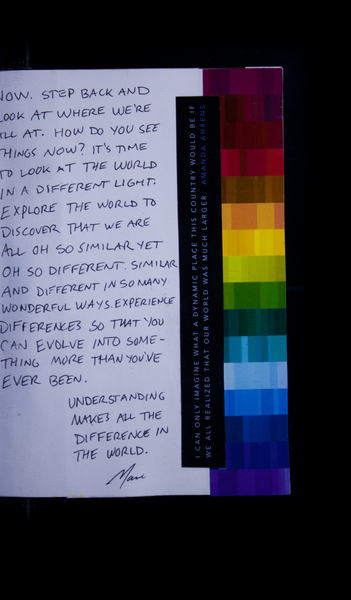 NOW. STEP BACK AND
LOOK AT WHERE WE'RE
ALL AT. HOW DO YOU SEE
THINGS NOW? IT'S TIME
TO LOOK AT THE WORLD
IN A DIFFERENT LIGHT.
EXPLORE THE WORLD TO
DISCOVER THAT WE ARE
ALL OH SO SIMILAR YET
OH SO DIFFERENT. SIMILAR
AND DIFFERENT IN SO MANY
WONDERFUL WAYS. EXPERIENCE
DIFFERENCES SO THAT YOU
CAN EVOLVE INTO SOME-
THING MORE THAN YOU'VE
EVER BEEN.
UNDERSTANDING
MAKES ALL THE
DIFFERENCE IN
THE WORLD.
Marc
I CAN ONLY IMAGINE WHAT A DYNAMIC PLACE THIS COUNTRY WOULD BE IF
WE ALL REALIZED THAT OUR WORLD WAS MUCH LARGER. AMANDA AHRENS